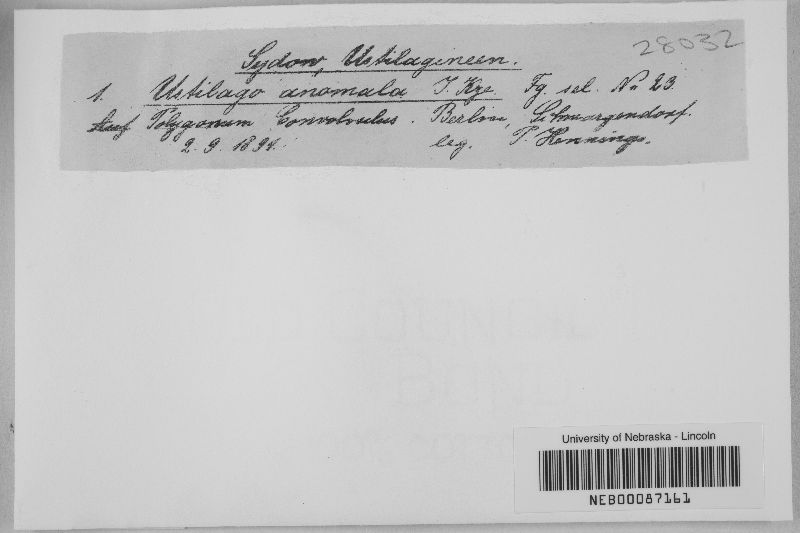 28032
Sydow, Ustilagineen.
1. Ustilago anomala J. Kze. Fg. sel. No 23.
Auf Polygonum Convolvulus. Berlin, Schmargendorf.
2. 9. 1894. leg. P. Hennings.
University of Nebraska - Lincoln
NEB00087161